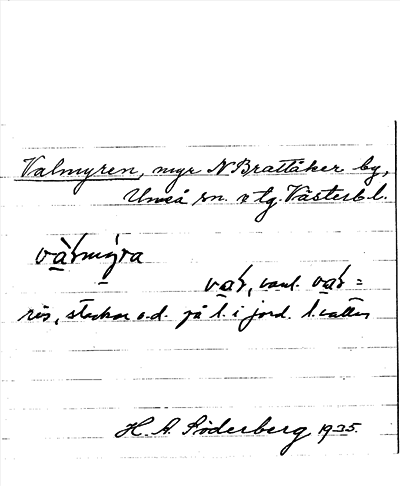 Valmyren, myr N Brattåker by,
Umeå sn. o tg. Västerb. l.
vàłmýra
vał, vanl. vał =
ris, stockar o.d. på l. i jord. l. vatten
H. A. Söderberg 1935.